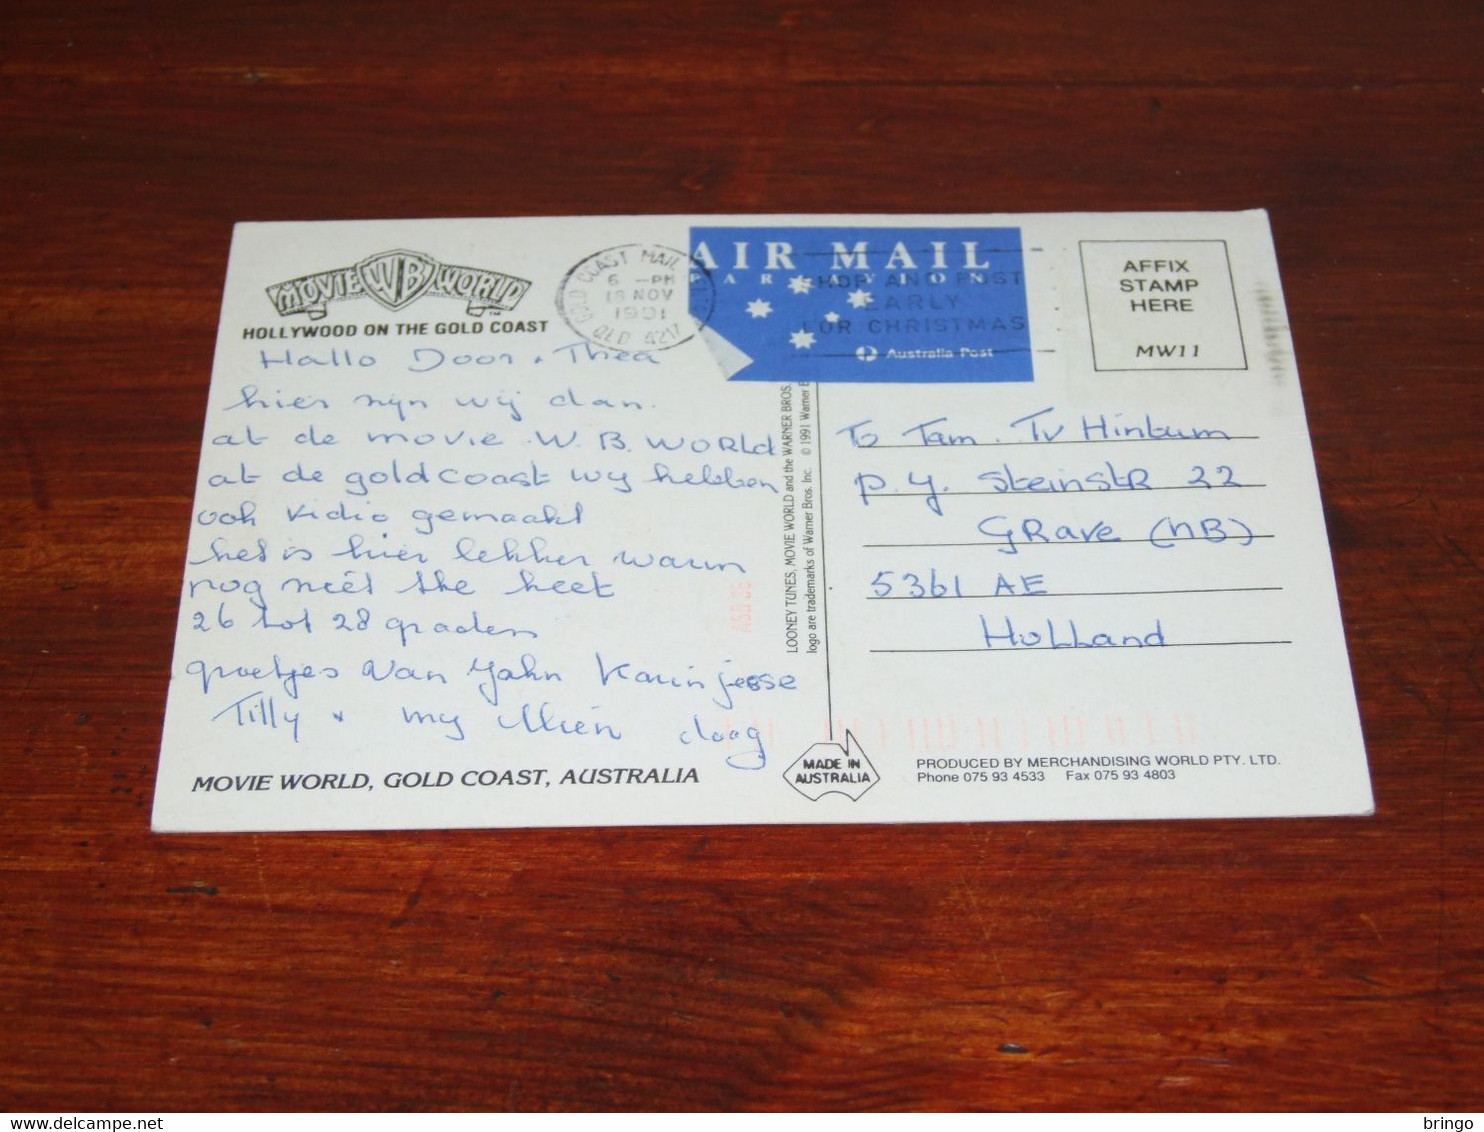 MOVIE WB WORLD
TM
HOLLYWOOD ON THE GOLD COAST
GOLD COAST MAIL
6 - PM
18 NOV
1991
QLD 4217
AIR MAIL
PAR AVION
SHOP AND POST
EARLY
FOR CHRISTMAS
Australia Post
AFFIX
STAMP
HERE
MW11
Hallo Door + Thea
hier zyn wij dan.
at de movie W.B. WORLd
at de gold coast wy hebben
ook vidio gemaakt
het is hier lekker warm
nog niet the heet
26 tot 28 graden
groetjes van John Karin jesse
Tilly + my Mien daag
MOVIE WORLD, GOLD COAST, AUSTRALIA
LOONEY TUNES, MOVIE WORLD and the WARNER BROS.
logo are trademarks of Warner Bros. Inc. © 1991 Warner B
MADE IN
AUSTRALIA
To Fam. TV Hintum
P.y. SteinstR 22
GRave (NB)
5361 AE
HoLLand
PRODUCED BY MERCHANDISING WORLD PTY. LTD.
Phone 075 93 4533 Fax 075 93 4803
delcampe.net
bringo